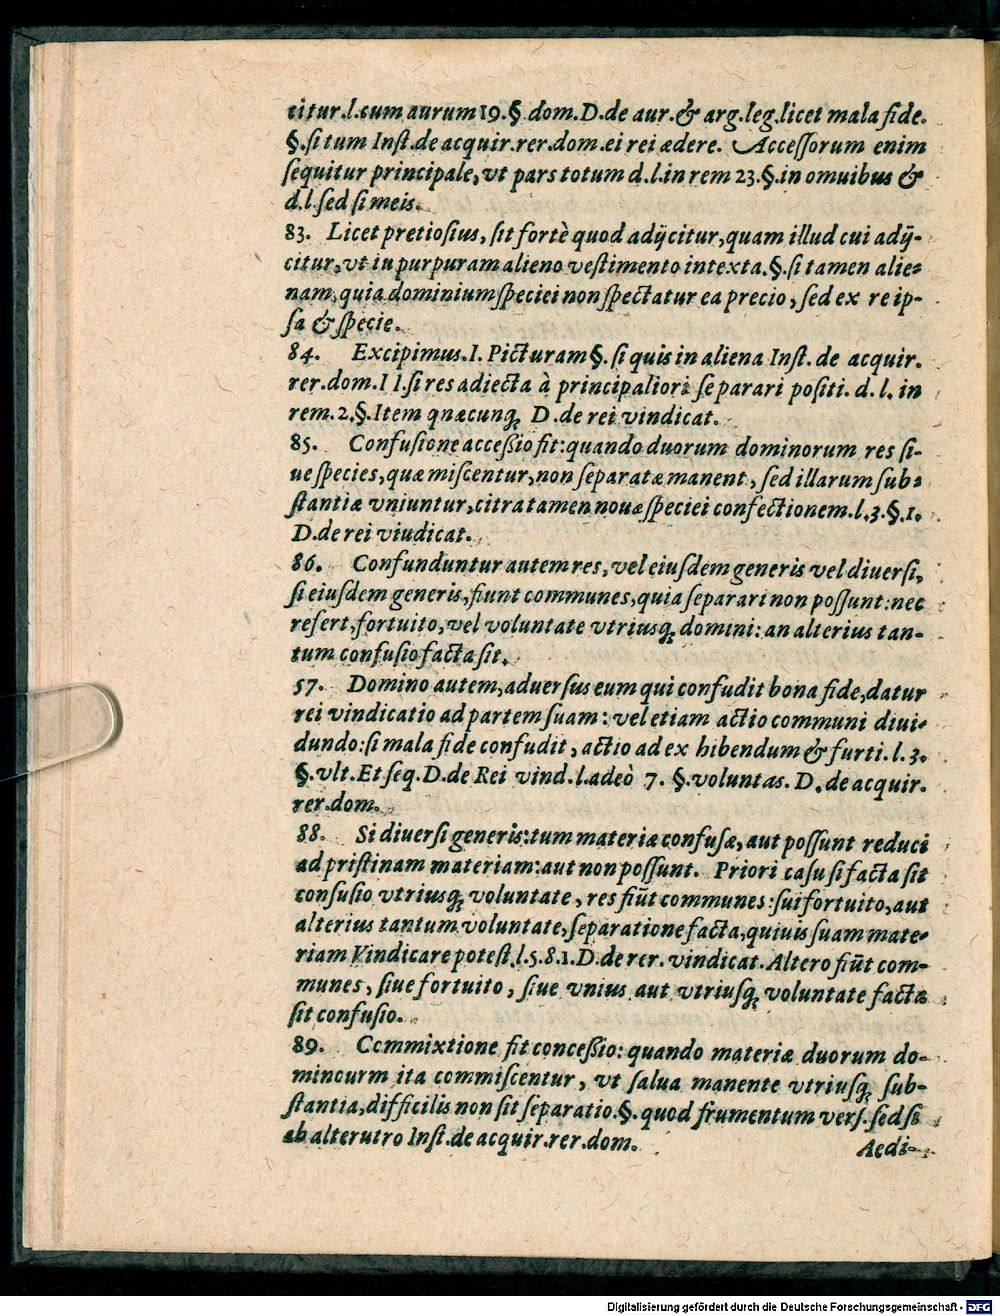 citur.l.cum aurum 19.§ dom.D.de aur.& arg.leg.licet mala fide.
§.si tum Inst.de acquir.rer.dom.ei rei ædere. Accessorum enim
sequitur principale, vt pars totum d.l.in rem 23.§.in omuibus &
d.l.sed si meis.
83. Licet pretiosius, sit fortè quod adijcitur, quam illud cui adij-
citur, vt iu purpuram alieno vestimento intexta.§.si tamen alie-
nam, quia dominium speciei non spectatur ea precio, sed ex re ip-
sa & specie.
84. Excipimus.I. Picturam §. si quis in aliena Inst. de acquir.
rer.dom.I I.si res adiecta à principaliori separari positi. d. l. in
rem.2.§.Item qnæcunq; D.de rei vindicat.
85. Confusione accessio fit: quando duorum dominorum res si-
ue species, quæ miscentur, non separatæ manent, sed illarum sub-
stantiæ vniuntur, citra tamen nouæ speciei confectionem.l.3.§.1.
D.de rei viudicat.
86. Confunduntur autem res, vel eiusdem generis vel diuersi,
si eiusdem generis, fiunt communes, quia separari non possunt: nec
refert, fortuito, vel voluntate vtriusq; domini: an alterius tan-
tum confusio facta sit.
57. Domino autem, aduersus eum qui confudit bona fide, datur
rei vindicatio ad partem suam: vel etiam actio communi diui-
dundo: si mala fide confudit, actio ad ex hibendum & furti.l.3.
§.vlt.Et seq.D.de Rei vind.l.adeò 7. §.voluntas. D. de acquir.
rer.dom.
88. Si diuersi generis: tum materiæ confusæ, aut possunt reduci
ad pristinam materiam: aut non possunt. Priori casu si facta sit
consusio vtriusq; voluntate, res fiūt communes: sui fortuito, aut
alterius tantum voluntate, separatione facta, quiuis suam mate-
riam Vindicare potest.l.5.8.1.D.de rer. vindicat. Altero fiūt com-
munes, siue fortuito, siue vnius aut vtriusq; voluntate facta
sit confusio.
89. Ccmmixtione fit concessio: quando materiæ duorum do-
mincurm ita commiscentur, vt salua manente vtriusq; sub-
stantia, difficilis non sit separatio.§. quod frumentum vers. sed si
ab alterutro Inst.de acquir.rer.dom.
Aedi-
Digitalisierung gefördert durch die Deutsche Forschungsgemeinschaft - DFG